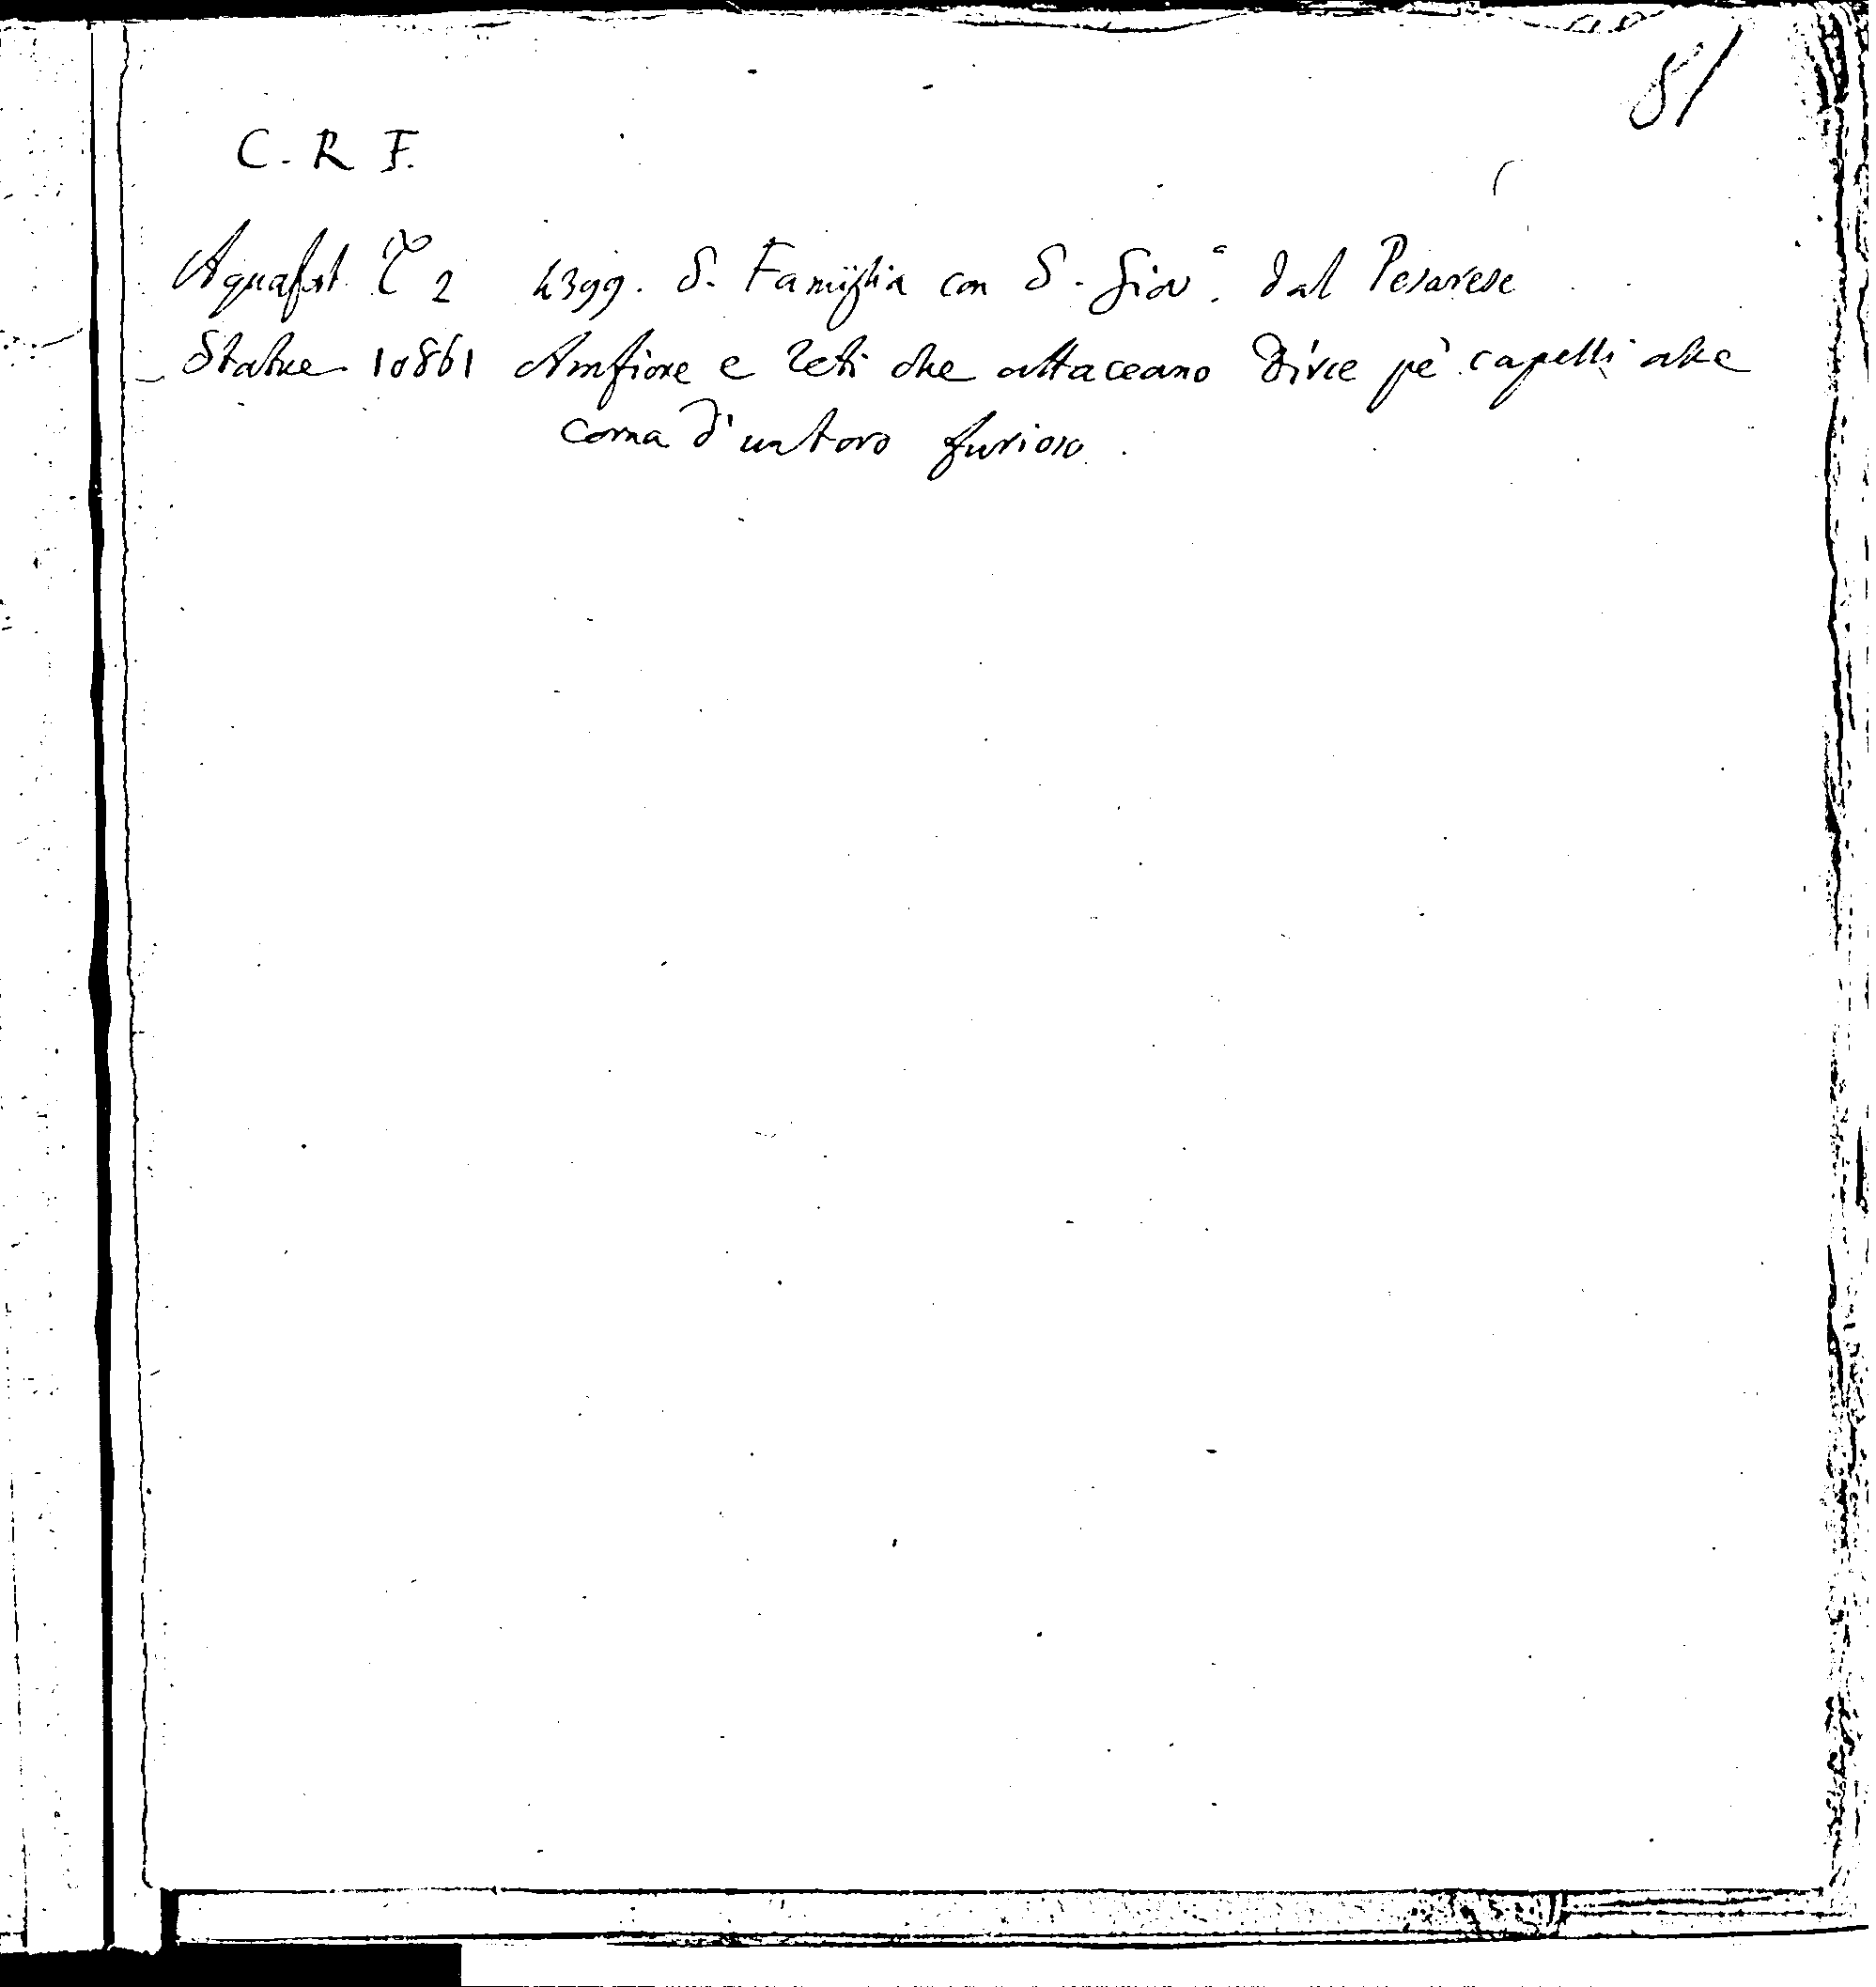 81
C. R F.
Aquafort. T 2 4399. S. Famiglia con S. Giov.ª dal Pesarese
Statue 10861 Amfione e Zeti che attaccano Dirce pe' capelli alle
corna d'un toro furioso.